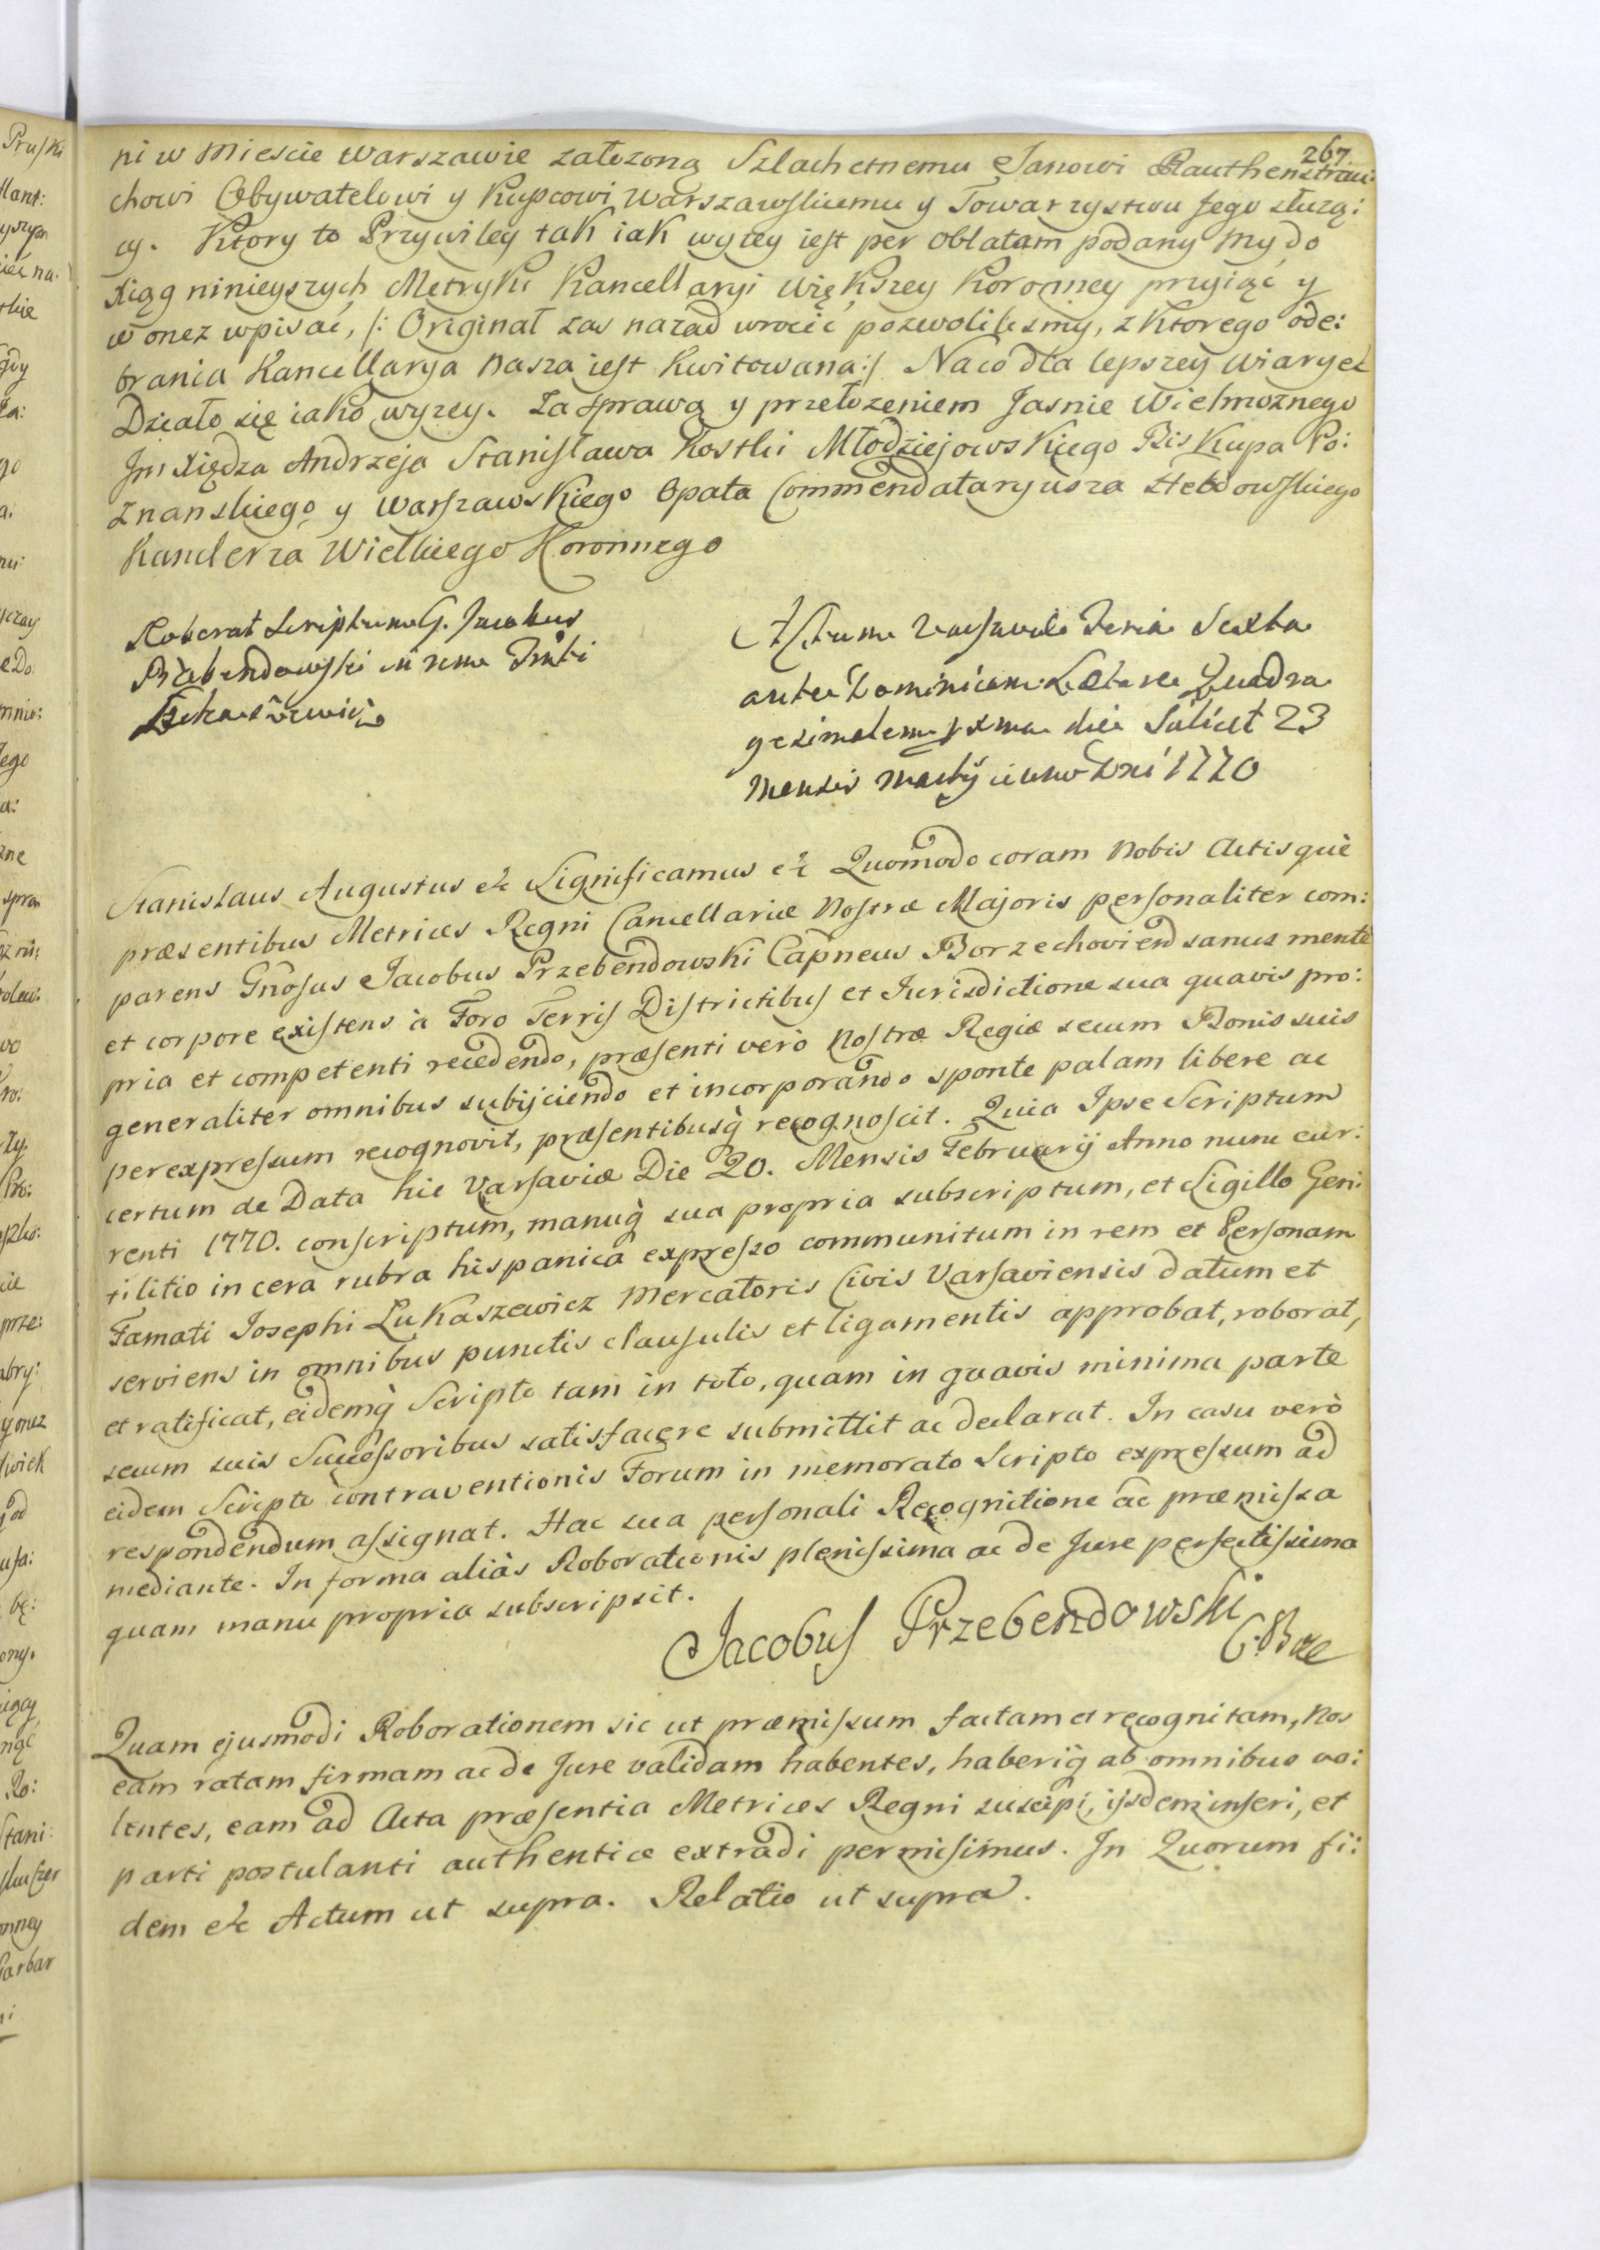 267.
ni w Miescie Warszawie załozoną Szlachetnemu Janowi Rauthenstrau:
chowi Obywatelowi y Kupcowi Warszawskiemu y Towarzystwu Jego słuzą:
cy. Ktory to Przywiley tak iak wyzey iest per oblatam podany My do
Xiąg ninieyszych Metryki Kancellaryi Większey Koronney przyiąć y
w onez wpisać, /: Originał zas nazad wrocić pozwolilismy, z ktorego ode:
brania Kancellarya Nasza iest kwitowana :/ Na co dla lepszey wiary etc
Działo się iako wyzey. Za sprawą y przełozeniem Jasnie Wielmoznego
Jm Xiędza Andrzeja Stanisława Kostki Młodziejowskiego Biskupa Po:
znanskiego y Warszawskiego Opata Commendataryusza Hebdowskiego
Kanclerza Wielkiego Koronnego
Roborat Scriptum G. Jacobus
Przebendowski in rem Fmti
Łukaszewicz
Actum Varsaviæ Feria Sexta
ante Dominicam Lætare Quadra
gesimalem pxma die Scilicet 23
Mensis Martij anno Dni 1770
Stanislaus Augustus etc Significamus etc Quomodo coram Nobis Actisque
præsentibus Metrices Regni Cancellariæ Nostræ Majoris personaliter com:
parens Gnosus Jacobus Przebendowski Capneus Borzechovien sanus mente
et corpore existens à Foro Terris Districtibus et Jurisdictione sua quavis pro:
pria et competenti recedendo, præsenti verò Nostræ Regiæ secum Bonis suis
generaliter omnibus subijciendo et incorporando sponte palam libere ac
per expressum recognovit, præsentibusq̀ recognoscit. Quia Ipse Scriptum
certum de Data hic Varsaviæ Die 20. Mensis Februarij Anno nunc cur:
renti 1770. conscriptum, manuq̀ sua propria subscriptum, et Sigillo Gen:
tilitio in cera rubra hispanica expresso communitum in rem et Personam
Famati Josephi Łukaszewicz Mercatoris Civis Varsaviensis datum et
serviens in omnibus punctis clausulis et ligamentis approbat, roborat,
et ratificat, eidemq̀ Scripto tam in toto, quam in quavis minima parte
secum suis Successoribus satisfacere submittit ac declarat. In casu verò
eidem Scripto contraventionis Forum in memorato Scripto expressum ad
respondendum assignat. Hac sua personali Recognitione ac præmissa
mediante. In forma aliàs Roborationis plenissima ac de Jure perfectissima
quam manu propria subscripsit.
Jacobus Przebendowski
Quam ejusmodi Roborationem sic ut præmissum factam et recognitam, Nos
eam ratam firmam ac de Jure validam habentes, haberiq̀ ab omnibus vo:
lentes, eam ad Acta præsentia Metrices Regni suscipi, ijsdem inseri, et
parti postulanti authentice extradi permisimus. In Quorum fi:
dem etc Actum ut supra. Relatio ut supra.